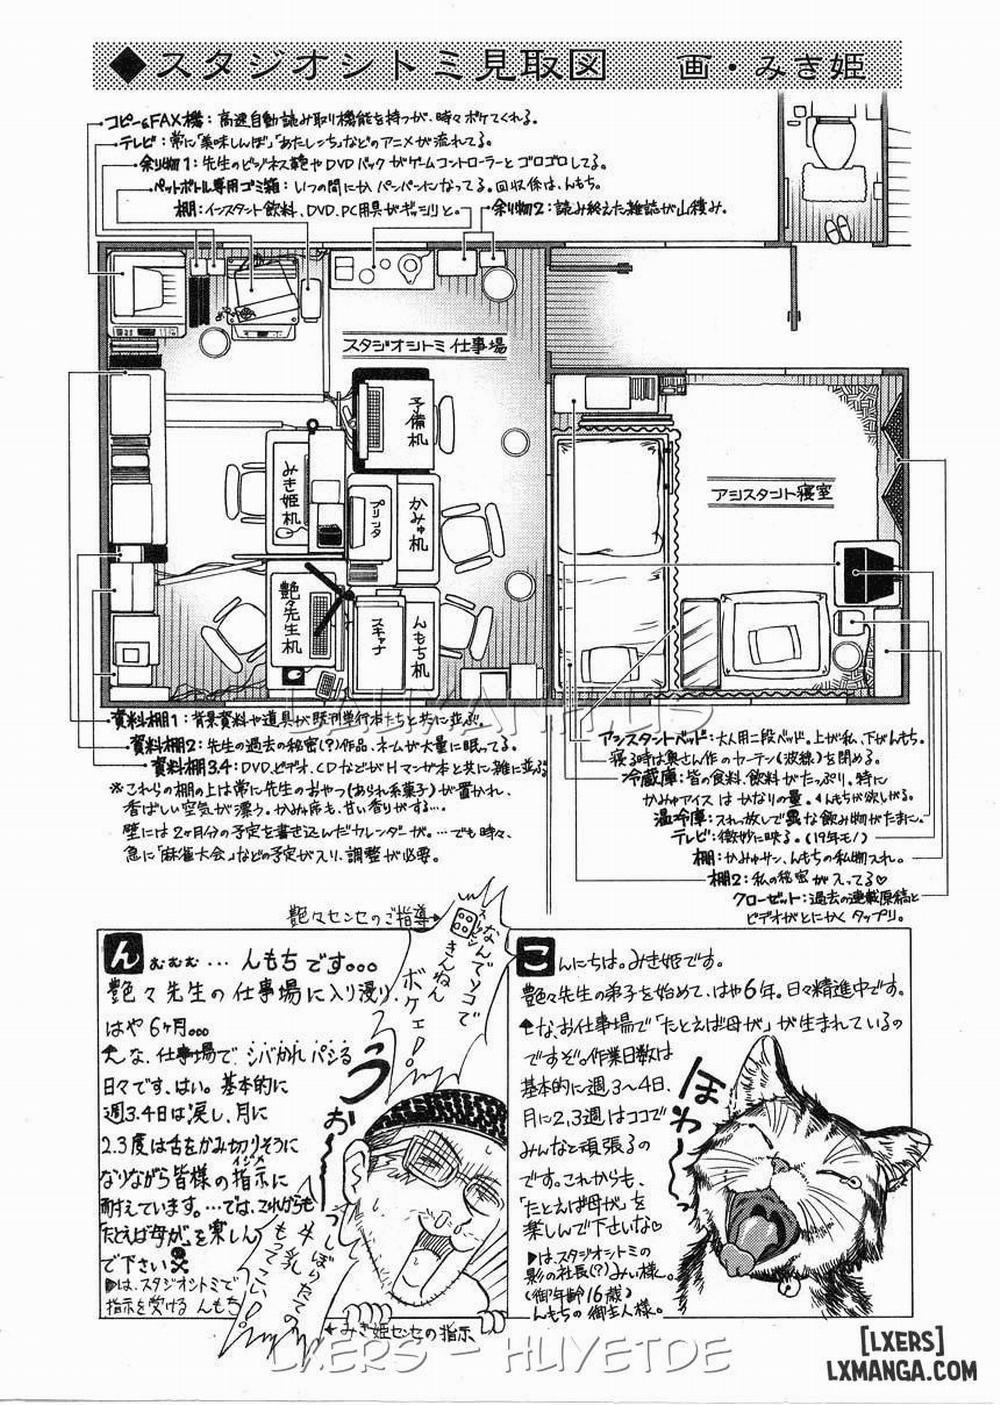 ◆スタジオシトミ見取図　画・みき姫
コピー&FAX機：高速自動読み取り機能を持つが、時々ボケてくれる。
テレビ：常に「美味しんぼ」「あたしンち」などのアニメが流れてる。
余り物1：先生のビジネス鞄やDVDパックがゲームコントローラーとゴロゴロしてる。
ペットボトル専用ゴミ箱：いつの間にかパンパンになってる。回収係は、んもち。
棚：インスタント飲料、DVD、PC用具がギッシリと。
余り物2：読み終えた雑誌が山積み。
スタジオシトミ仕事場
予備机
みき姫机
プリンタ
かみゅ机
艶々先生机
スキャナ
んもち机
アシスタント寝室
資料棚1：背景資料や道具が既刊単行本たちと共に並ぶ。
資料棚2：先生の過去の秘密(?)作品、ネームが大量に眠ってる。
資料棚3.4：DVD、ビデオ、CDなどがHマンガ本と共に雑に並ぶ
※これらの棚の上は常に先生のおやつ(あられ系菓子)が置かれ、
香ばしい空気が漂う。かみゅ席も、甘い香りがする…。
壁には2ヶ月分の予定を書き込んだカレンダーが。…でも時々、
急に「麻雀大会」などの予定が入り、調整が必要。
アシスタントベッド：大人用二段ベッド。上が私、下がんもち。
寝る時は奥さん作のカーテン(波線)を閉める。
冷蔵庫：皆の食料、飲料がたっぷり、特に
かみゅアイスはかなりの量。んもちが欲しがる。
温冷庫：スれっ放しで異な飲み物がたまに。
テレビ：微妙に映る。(19年モノ)
棚：かみゅサン、んもちの私物入れ。
棚2：私の秘密が入ってる♡
クローゼット：過去の連載原稿と
ビデオがとにかくタップリ。
艶々センセのご指導→
なんでソコで
きんねん
ボケェ!
んぉむむむ… んもちです。。。
艶々先生の仕事場に入り浸り、
はや6ヶ月。。。
な、仕事場でシバかれパシる
日々です、はい。基本的に
週3.4日は涙し、月に
2.3度は舌をかみ切りそうに
なりながら皆様の指示に
イジメ
耐えています。…では、これからも
「たとえば母が」を楽しん
で下さい☠
▶は、スタジオシトミで
指示を受ける んもち
うぉー
しぼりたての
乳
もってこい!
←みき姫センセの指示
こんにちは。みき姫です。
艶々先生の弟子を始めて、はや6年。日々精進中です。
な、お仕事場で「たとえば母が」が生まれているの
ですぞ。作業日数は
基本的に週3〜4日、
月に2,3週はココで
みんなと頑張るの
です。これからも、
「たとえば母が」を
楽しんで下さいな♡
▶は、スタジオシトミの
影の社長(?)みぃ様。
(御年齢16歳)
んもちの御主人様。
ほわ〜っ
LXERS - HLIVETDE
[LXERS]
LXMANGA.COM